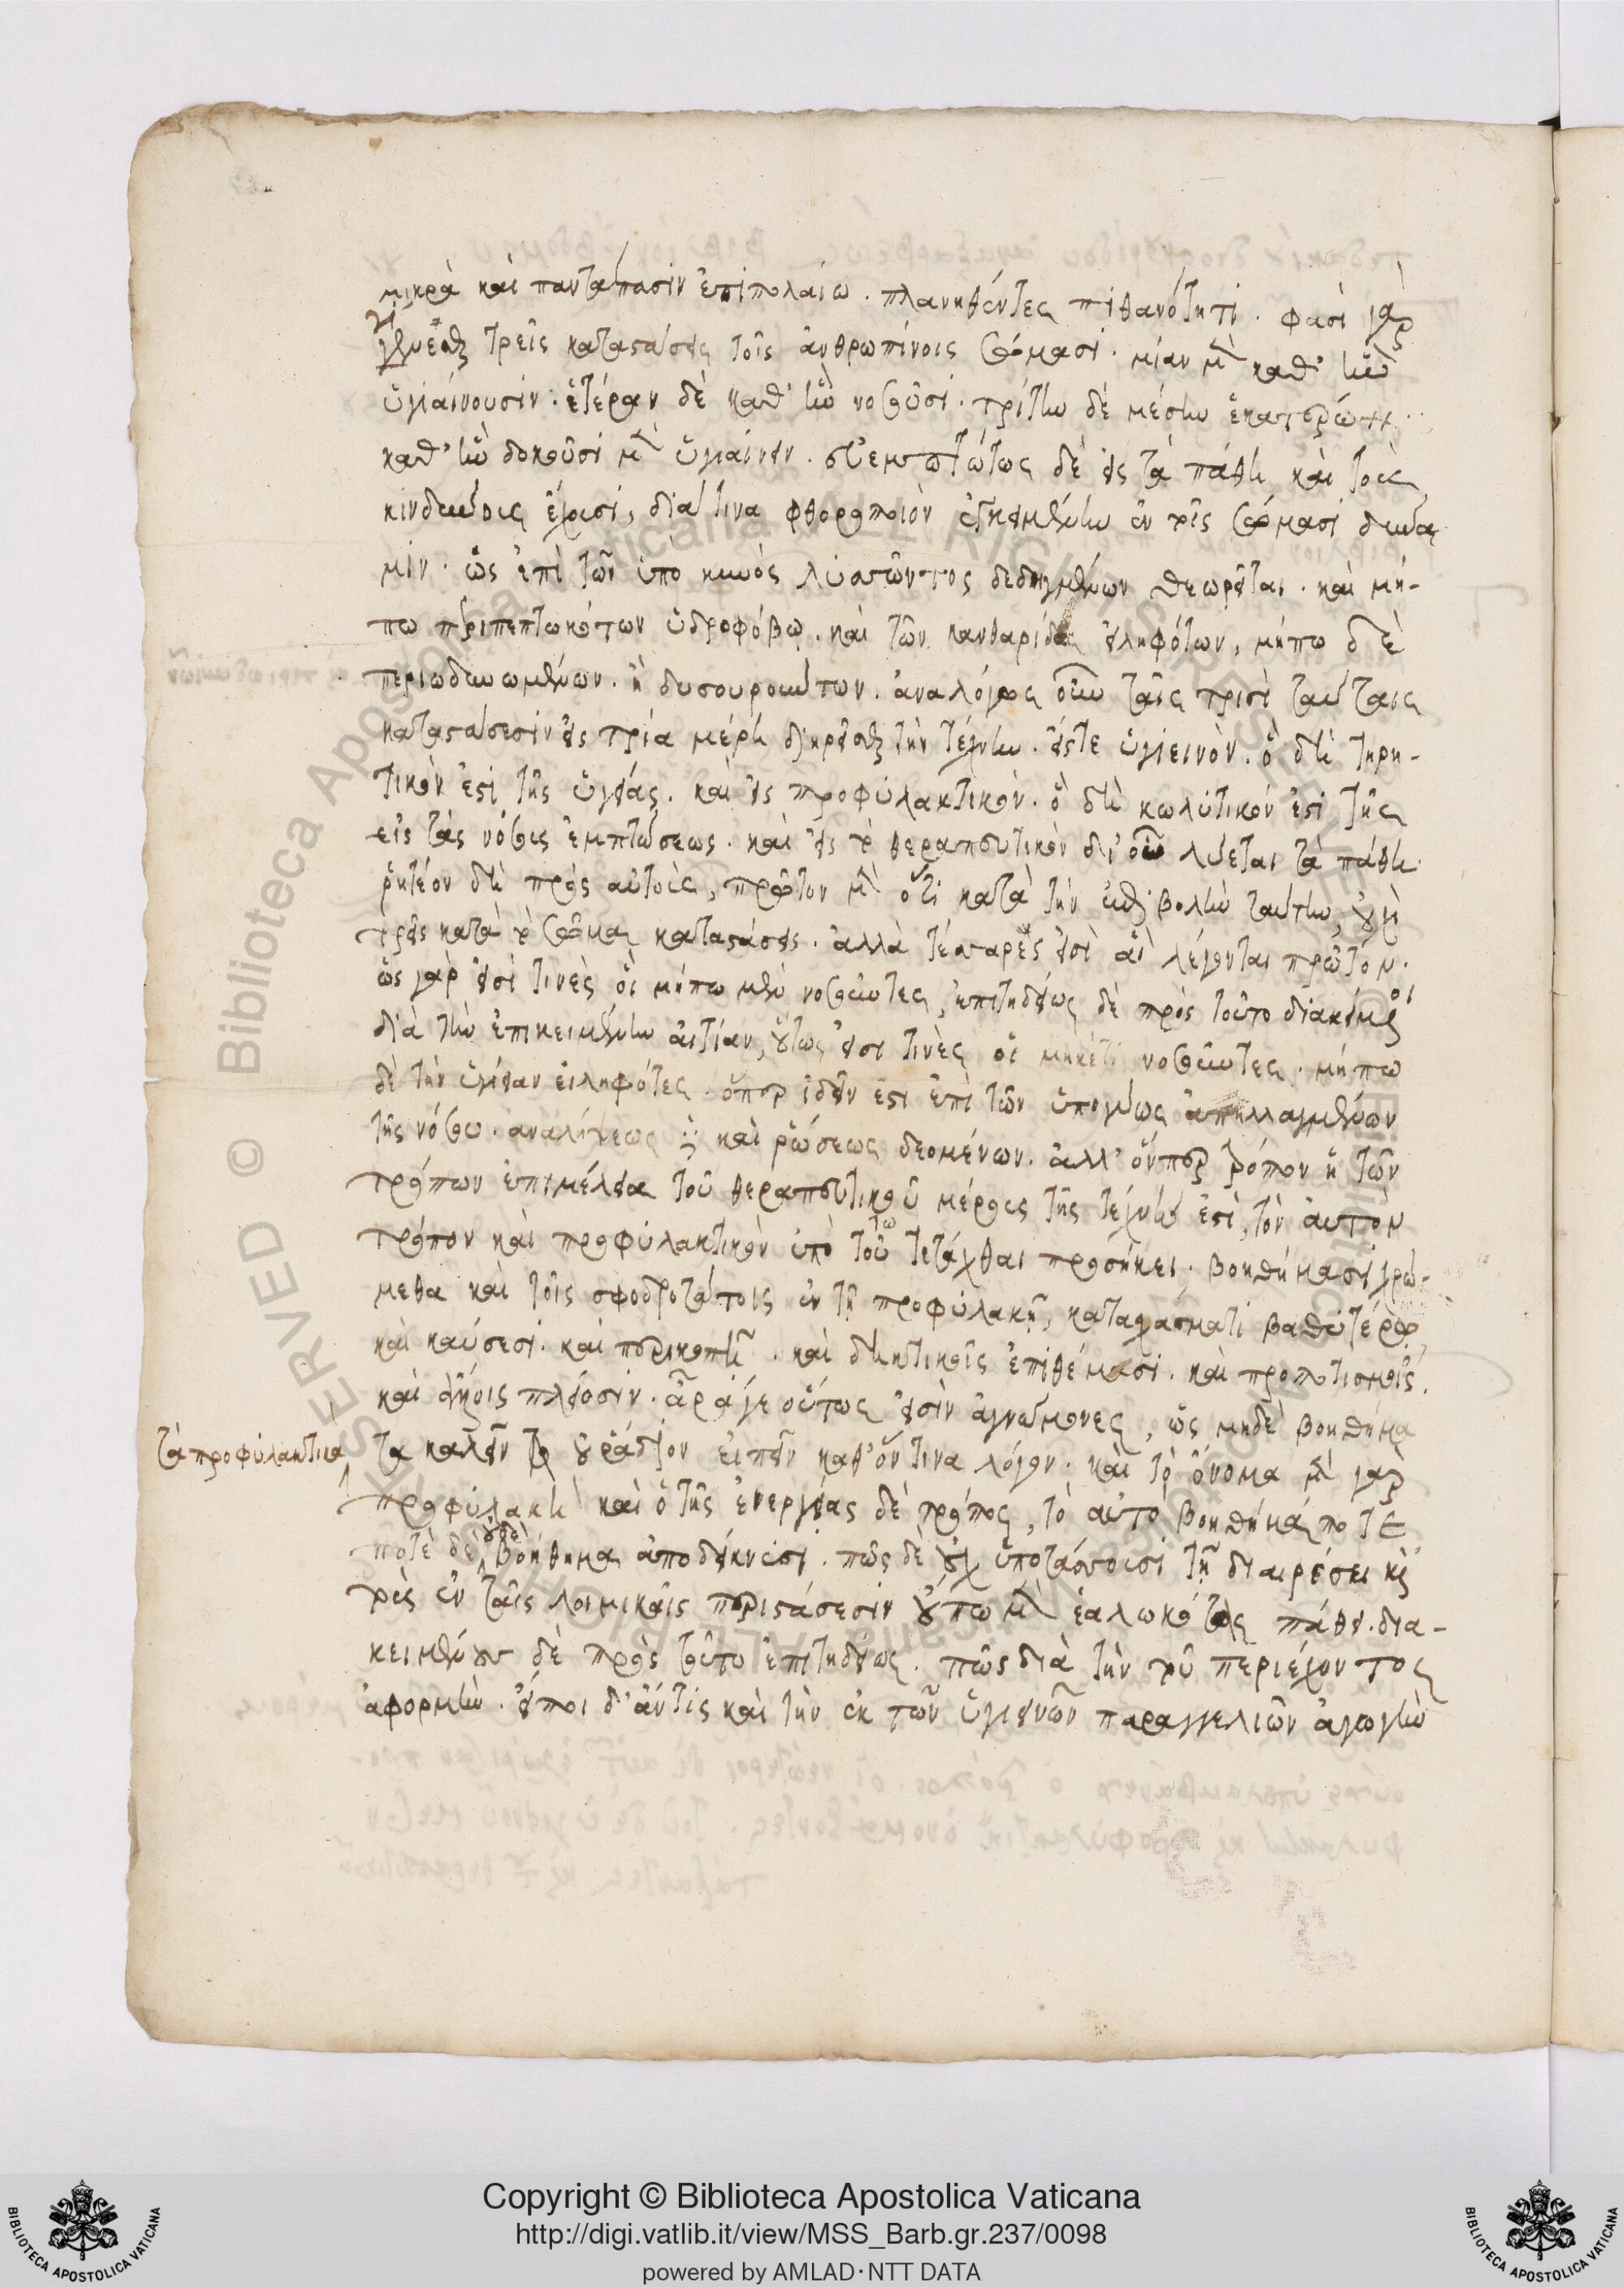 μικρὰ καὶ παντάπασιν ἐπιπολαίω. πλανηθέντες πιθανότητι. φασὶ γὰρ
γίνεσθαι τρεῖς καταστάσεις τοῖς ἀνθρωπίνοις σώμασι. μίαν μὲν καθ' ἣν
ὑγιαίνουσιν. ἑτέραν δὲ καθ' ἣν νοσοῦσι. τρίτην δὲ μέσην ἑκατέρων.
καθ' ἣν δοκοῦσι μὲν ὑγιαίνειν. εὐεμπτώτως δὲ εἰς τὰ πάθη καὶ τοὺς
κινδύνους ἔχουσι, διά τινα φθοροποιὸν ἐγκειμένην ἐν τοῖς σώμασι δύνα
μιν. ὡς ἐπὶ τῶν ὑπὸ κυνὸς λυσσῶντος δεδηγμένων θεωρεῖται. καὶ μή-
πω περιπεπτωκότων ὑδροφόβω. καὶ τῶν κανθαρίδας εἰληφότων, μήπω δὲ
περιωδυνωμένων. ἢ δυσουρούντων. ἀναλόγως οὖν ταῖς τρισὶ ταύταις
καταστάσεσιν εἰς τρία μέρη διηρεῖσθαι τὴν τέχνην. εἴς τε ὑγιεινὸν. ὃ δὴ τηρη-
τικόν ἐστι τῆς ὑγείας. καὶ εἰς προφυλακτικὸν. ὃ δὴ κωλυτικόν ἐστι τῆς
εἰς τὰς νόσους ἐμπτώσεως. καὶ εἰς τὸ θεραπευτικὸν δι' οὗ λύεται τὰ πάθη.
ῥητέον δὴ πρὸς αὐτοὺς, πρῶτον μὲν ὅτι κατὰ τὴν ἐπιβολὴν ταύτην, οὐχὶ
τρεῖς κατὰ τὸ σῶμα καταστάσεις. ἀλλὰ τέσσαρες εἰσὶ αἳ λέγονται πρῶτον.
ὡς γὰρ εἰσὶ τινὲς οἳ μήπω μὲν νοσοῦντες, ἐπιτηδείως δὲ πρὸς τοῦτο διακείμενοι
διὰ τὴν ἐπικειμένην αἰτίαν, οὕτως εἰσι τινὲς οἳ μηκέτι νοσοῦντες. μήπω
δὲ τὴν ὑγίειαν εἰληφότες. ὅπερ ἰδεῖν ἐστι ἐπὶ τῶν ὑπογύως ἀπηλλαγμένων
τῆς νόσου. ἀναλήψεως καὶ ῥώσεως δεομένων. ἀλλ' ὅνπερ τρόπον ἡ τῶν
τρόπων ἐπιμέλεια τοῦ θεραπευτικοῦ μέρους τῆς τέχνης ἐστὶ, τὸν αὐτὸν
τρόπον καὶ προφυλακτικὸν ὑπὸ τοῦτω τετάχθαι προσήκει. βοηθήμασι χρώ-
μεθα καὶ τοῖς σφοδροτάτοις ἐν τῇ προφυλακῇ, καταχάσματι βαθυτέρω,
καὶ καύσεσι. καὶ περικοπῇ. καὶ δηκτικοῖς ἐπιθέμασι. καὶ προποτισμοῖς.
καὶ ἄλλοις πλείοσιν. ἆρά γε οὕτως εἰσὶν ἀγνώμονες, ὡς μηδὲ βοηθήμα
τὰ προφυλακτικὰ
τα καλεῖν οὐ ῥάδιον εἰπεῖν καθ' ὅντινα λόγον. καὶ τὸ ὄνομα μὲν γὰρ
προφυλακὴ καὶ ὁ τῆς ἐνεργείας δὲ τρόπος, τὸ αὐτὸ βοηθήμά ποτε
ποτὲ δὲ οὐδὲ βοήθημα ἀποδείκνυσι. πῶς δὲ οὐχ ὑποτάσσουσι τῇ διαιρέσει καὶ
τοὺς ἐν ταῖς λοιμικαῖς περιστάσεσιν οὔπω μὲν ἑαλωκότας πάθει. δια-
κειμένους δὲ πρὸς τοῦτο ἐπιτηδείως. πῶς διὰ τὴν τοῦ περιέχοντος
ἀφορμὴν. εἴποι δ' ἄν τις καὶ τὴν ἐκ τῶν ὑγιεινῶν παραγγελιῶν ἀγωγὴν
Copyright © Biblioteca Apostolica Vaticana
http://digi.vatlib.it/view/MSS_Barb.gr.237/0098
powered by AMLAD·NTT DATA
BIBLIOTECA APOSTOLICA VATICANA
BIBLIOTECA APOSTOLICA VATICANA